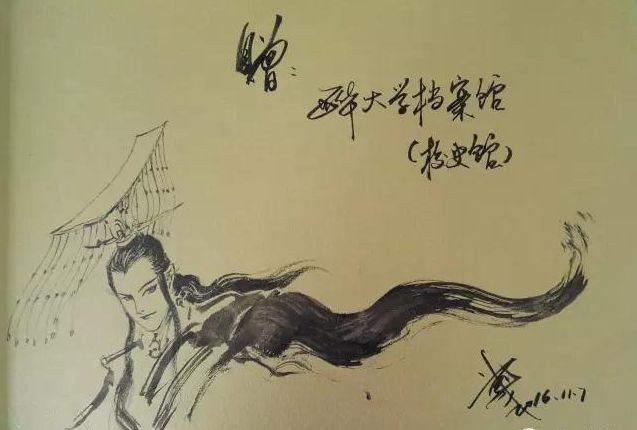 赠:
西华大学档案馆
(校史馆)
2016.11.7